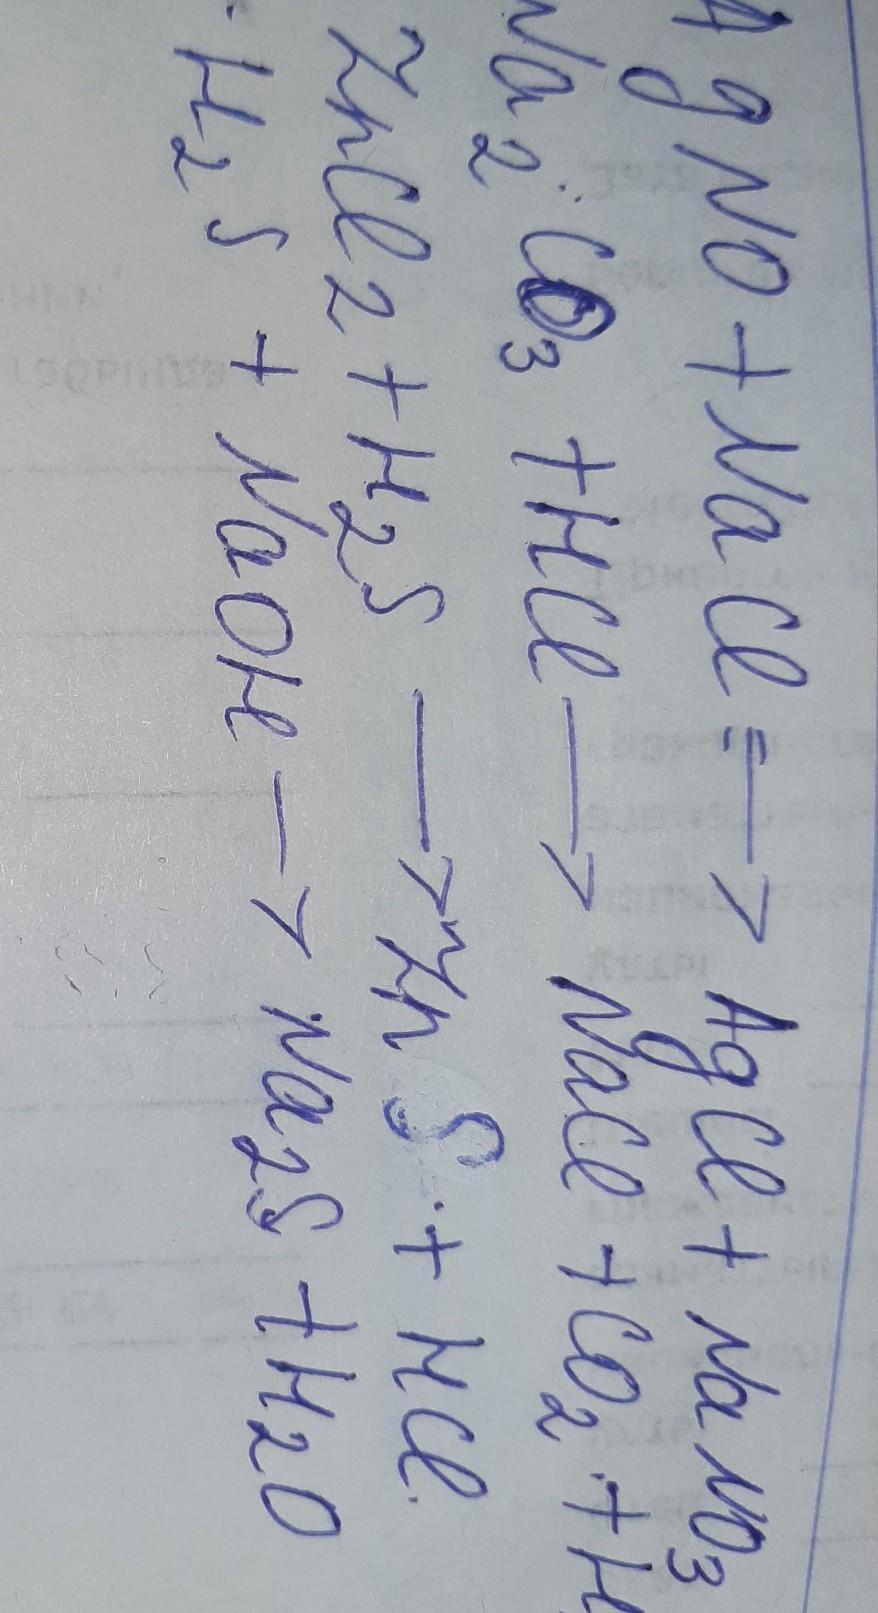 AgNO + NaCl = → AgCl + NaNO3
Na2CO3 + HCl → NaCl + CO2 + H
ZnCl2 + H2S → ZnS + HCl
H2S + NaOH → Na2S + H2O